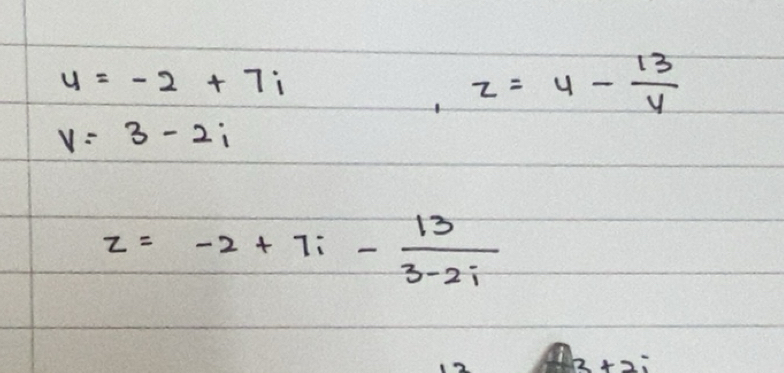 u = -2 + 7i , z = u - 13/v
v = 3 - 2i
z = -2 + 7i - 13/(3-2i)
13 3+2i